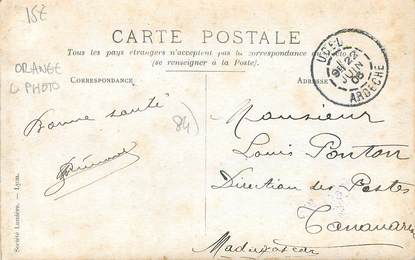 15€
ORANGE
C PHOTO
CARTE POSTALE
Tous les pays étrangers n'acceptent pas la correspondance au recto
(se renseigner à la Poste).
CORRESPONDANCE
ADRESSE
UCEL
22
JUIN
05
ARDÈCHE
Bonne santé
84)
Monsieur
Louis Ponton
Direction des Postes
Tananarive
Madagascar
Société Lumière. — Lyon.